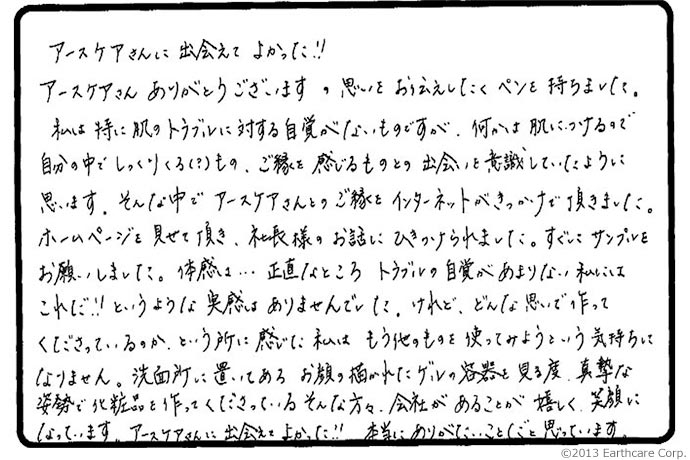 アースケアさんに出会えてよかった!!
アースケアさん ありがとうございます の思いをお伝えしたくペンを持ちました。
私は特に肌のトラブルに対する自覚がないものですが、何かは肌につけるので
自分の中でしっくりくる(?)もの、ご縁を感じるものとの出会いを意識していたように
思います。そんな中でアースケアさんとのご縁をインターネットがきっかけで頂きました。
ホームページを見せて頂き、社長様のお話にひきつけられました。すぐにサンプルを
お願いしました。体感は… 正直なところ トラブルの自覚があまりない私には
これだ!!というような実感はありませんでした。けれど、どんな思いで作って
くださっているのか、という所に感じた私は もう他のものを使ってみようという気持ちに
なりません。洗面所に置いてある お顔の描かれたゲルの容器を見る度、真摯な
姿勢で化粧品を作ってくださっているそんな方々、会社があることが嬉しく、笑顔に
なっています。アースケアさんに出会えてよかった!! 本当にありがたいことだと思っています。
©2013 Earthcare Corp.